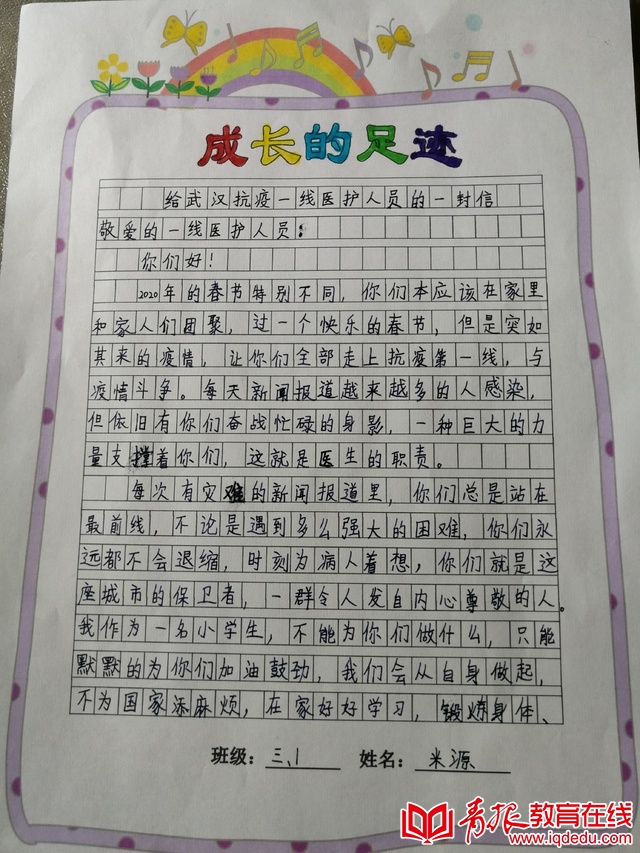 成长的足迹
给武汉抗疫一线医护人员的一封信
敬爱的一线医护人员：
你们好！
2020年的春节特别不同，你们本应该在家里
和家人们团聚，过一个快乐的春节，但是突如
其来的疫情，让你们全部走上抗疫第一线，与
疫情斗争。每天新闻报道越来越多的人感染，
但依旧有你们奋战忙碌的身影，一种巨大的力
量支撑着你们，这就是医生的职责。
每次有灾难的新闻报道里，你们总是站在
最前线，不论是遇到多么强大的困难，你们永
远都不会退缩，时刻为病人着想，你们就是这
座城市的保卫者，一群令人发自内心尊敬的人。
我作为一名小学生，不能为你们做什么，只能
默默的为你们加油鼓劲，我们会从自身做起，
不为国家添麻烦，在家好好学习，锻炼身体、
班级：三、1 姓名：米源
青报教育在线
www.iqdedu.com